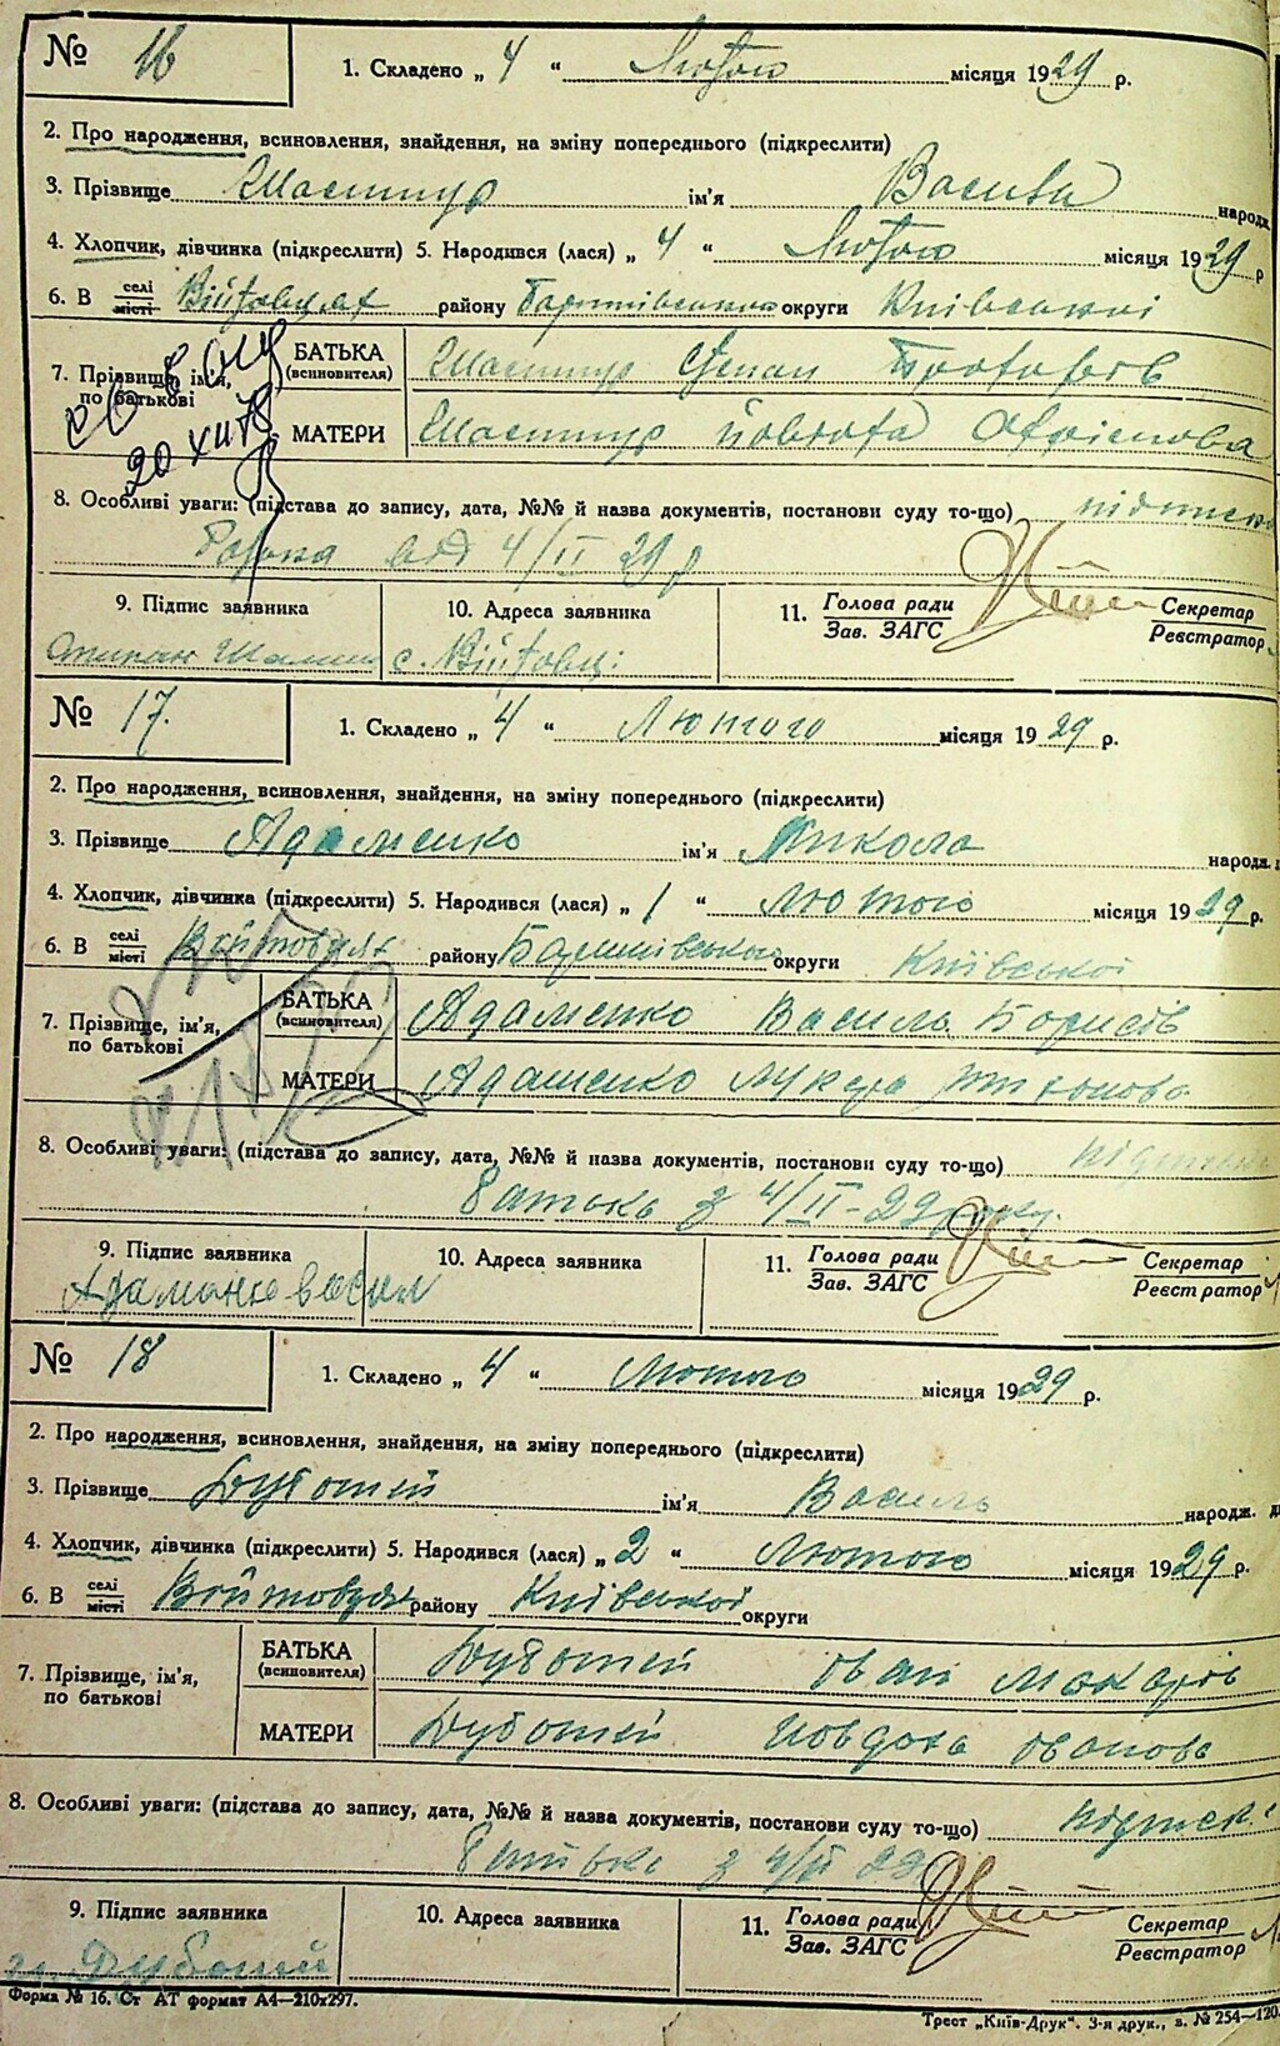 № 16
1. Складено „ 4 “ Лютого місяця 1929 р.
2. Про народження, всиновлення, знайдення, на зміну попереднього (підкреслити)
3. Прізвище Шастур ім'я Василь народж.
4. Хлопчик, дівчинка (підкреслити) 5. Народився (лася) „ 4 “ Лютого місяця 1929 р
6. В селі місті Війтовцях району Баришівського округи Київської
7. Прізвище, ім'я, по батькові
БАТЬКА (всиновителя) Шастур Степан
МАТЕРИ Шастур Йовдоха
20 XII 78
8. Особливі уваги: (підстава до запису, дата, №№ й назва документів, постанови суду то-що) підписка
батька від 4/II 29 р
9. Підпис заявника
10. Адреса заявника
11. Голова ради Зав. ЗАГС
Секретар Реєстратор
с. Війтовці
№ 17.
1. Складено „ 4 “ Лютого місяця 1929 р.
2. Про народження, всиновлення, знайдення, на зміну попереднього (підкреслити)
3. Прізвище Адаменко ім'я Микола народж.
4. Хлопчик, дівчинка (підкреслити) 5. Народився (лася) „ 1 “ Лютого місяця 1929 р.
6. В селі місті Войтовцях району Баришівського округи Київської
7. Прізвище, ім'я, по батькові
БАТЬКА (всиновителя) Адаменко Василь Борисів
МАТЕРИ Адаменко
8. Особливі уваги: (підстава до запису, дата, №№ й назва документів, постанови суду то-що)
батька з 4/II-29 року.
9. Підпис заявника
10. Адреса заявника
11. Голова ради Зав. ЗАГС
Секретар Реєстратор
№ 18
1. Складено „ 4 “ Лютого місяця 1929 р.
2. Про народження, всиновлення, знайдення, на зміну попереднього (підкреслити)
3. Прізвище Дубогей ім'я Василь народж.
4. Хлопчик, дівчинка (підкреслити) 5. Народився (лася) „ 2 “ Лютого місяця 1929 р.
6. В селі місті Войтовцях району Київської округи
7. Прізвище, ім'я, по батькові
БАТЬКА (всиновителя) Дубогей Іван Макарів
МАТЕРИ Дубогей Йовдоха Іванова
8. Особливі уваги: (підстава до запису, дата, №№ й назва документів, постанови суду то-що)
батька з 4/II 29
9. Підпис заявника
10. Адреса заявника
11. Голова ради Зав. ЗАГС
Секретар Реєстратор
Форма № 16. Ст АТ формат А4—210х297.
Трест „Київ-Друк“. 3-я друк., з. № 254—120.